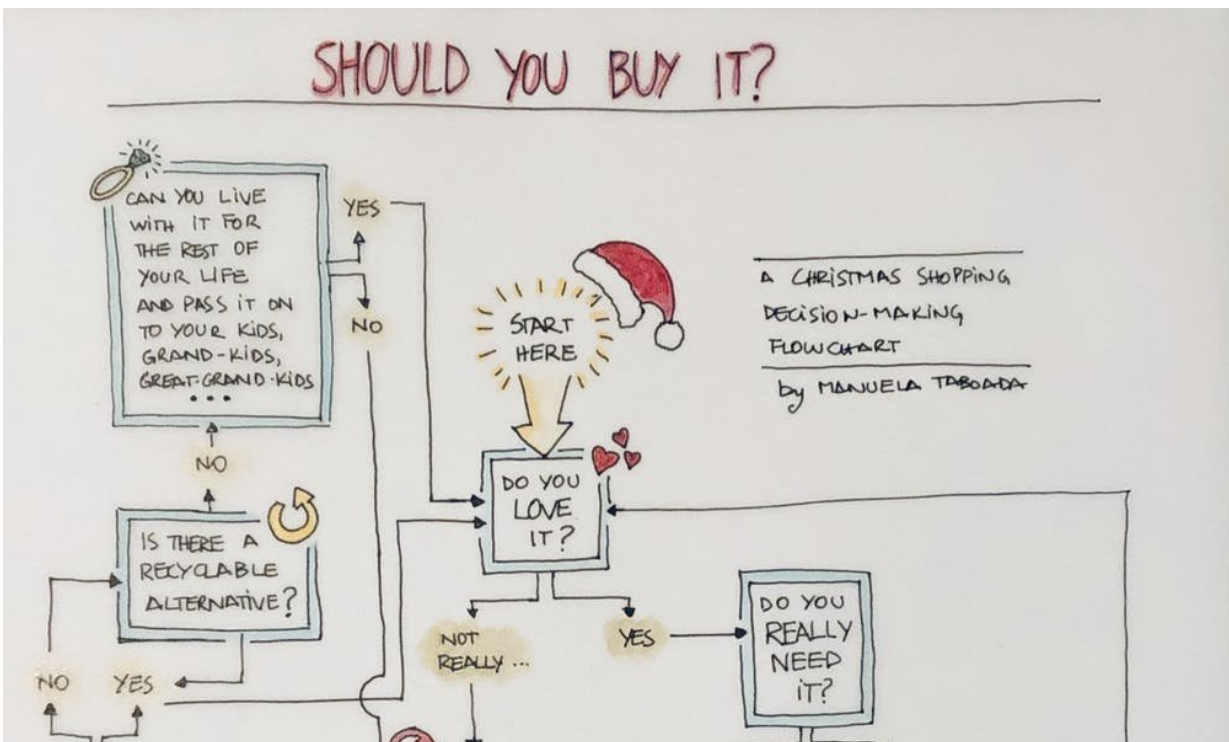 SHOULD YOU BUY IT?
CAN YOU LIVE
WITH IT FOR
THE REST OF
YOUR LIFE
AND PASS IT ON
TO YOUR KIDS,
GRAND-KIDS,
GREAT-GRAND-KIDS
...
YES
NO
START
HERE
A CHRISTMAS SHOPPING
DECISION-MAKING
FLOWCHART
by MANUELA TABOADA
NO
DO YOU
LOVE
IT?
IS THERE A
RECYCLABLE
ALTERNATIVE?
NOT
REALLY ...
YES
DO YOU
REALLY
NEED
IT?
NO
YES